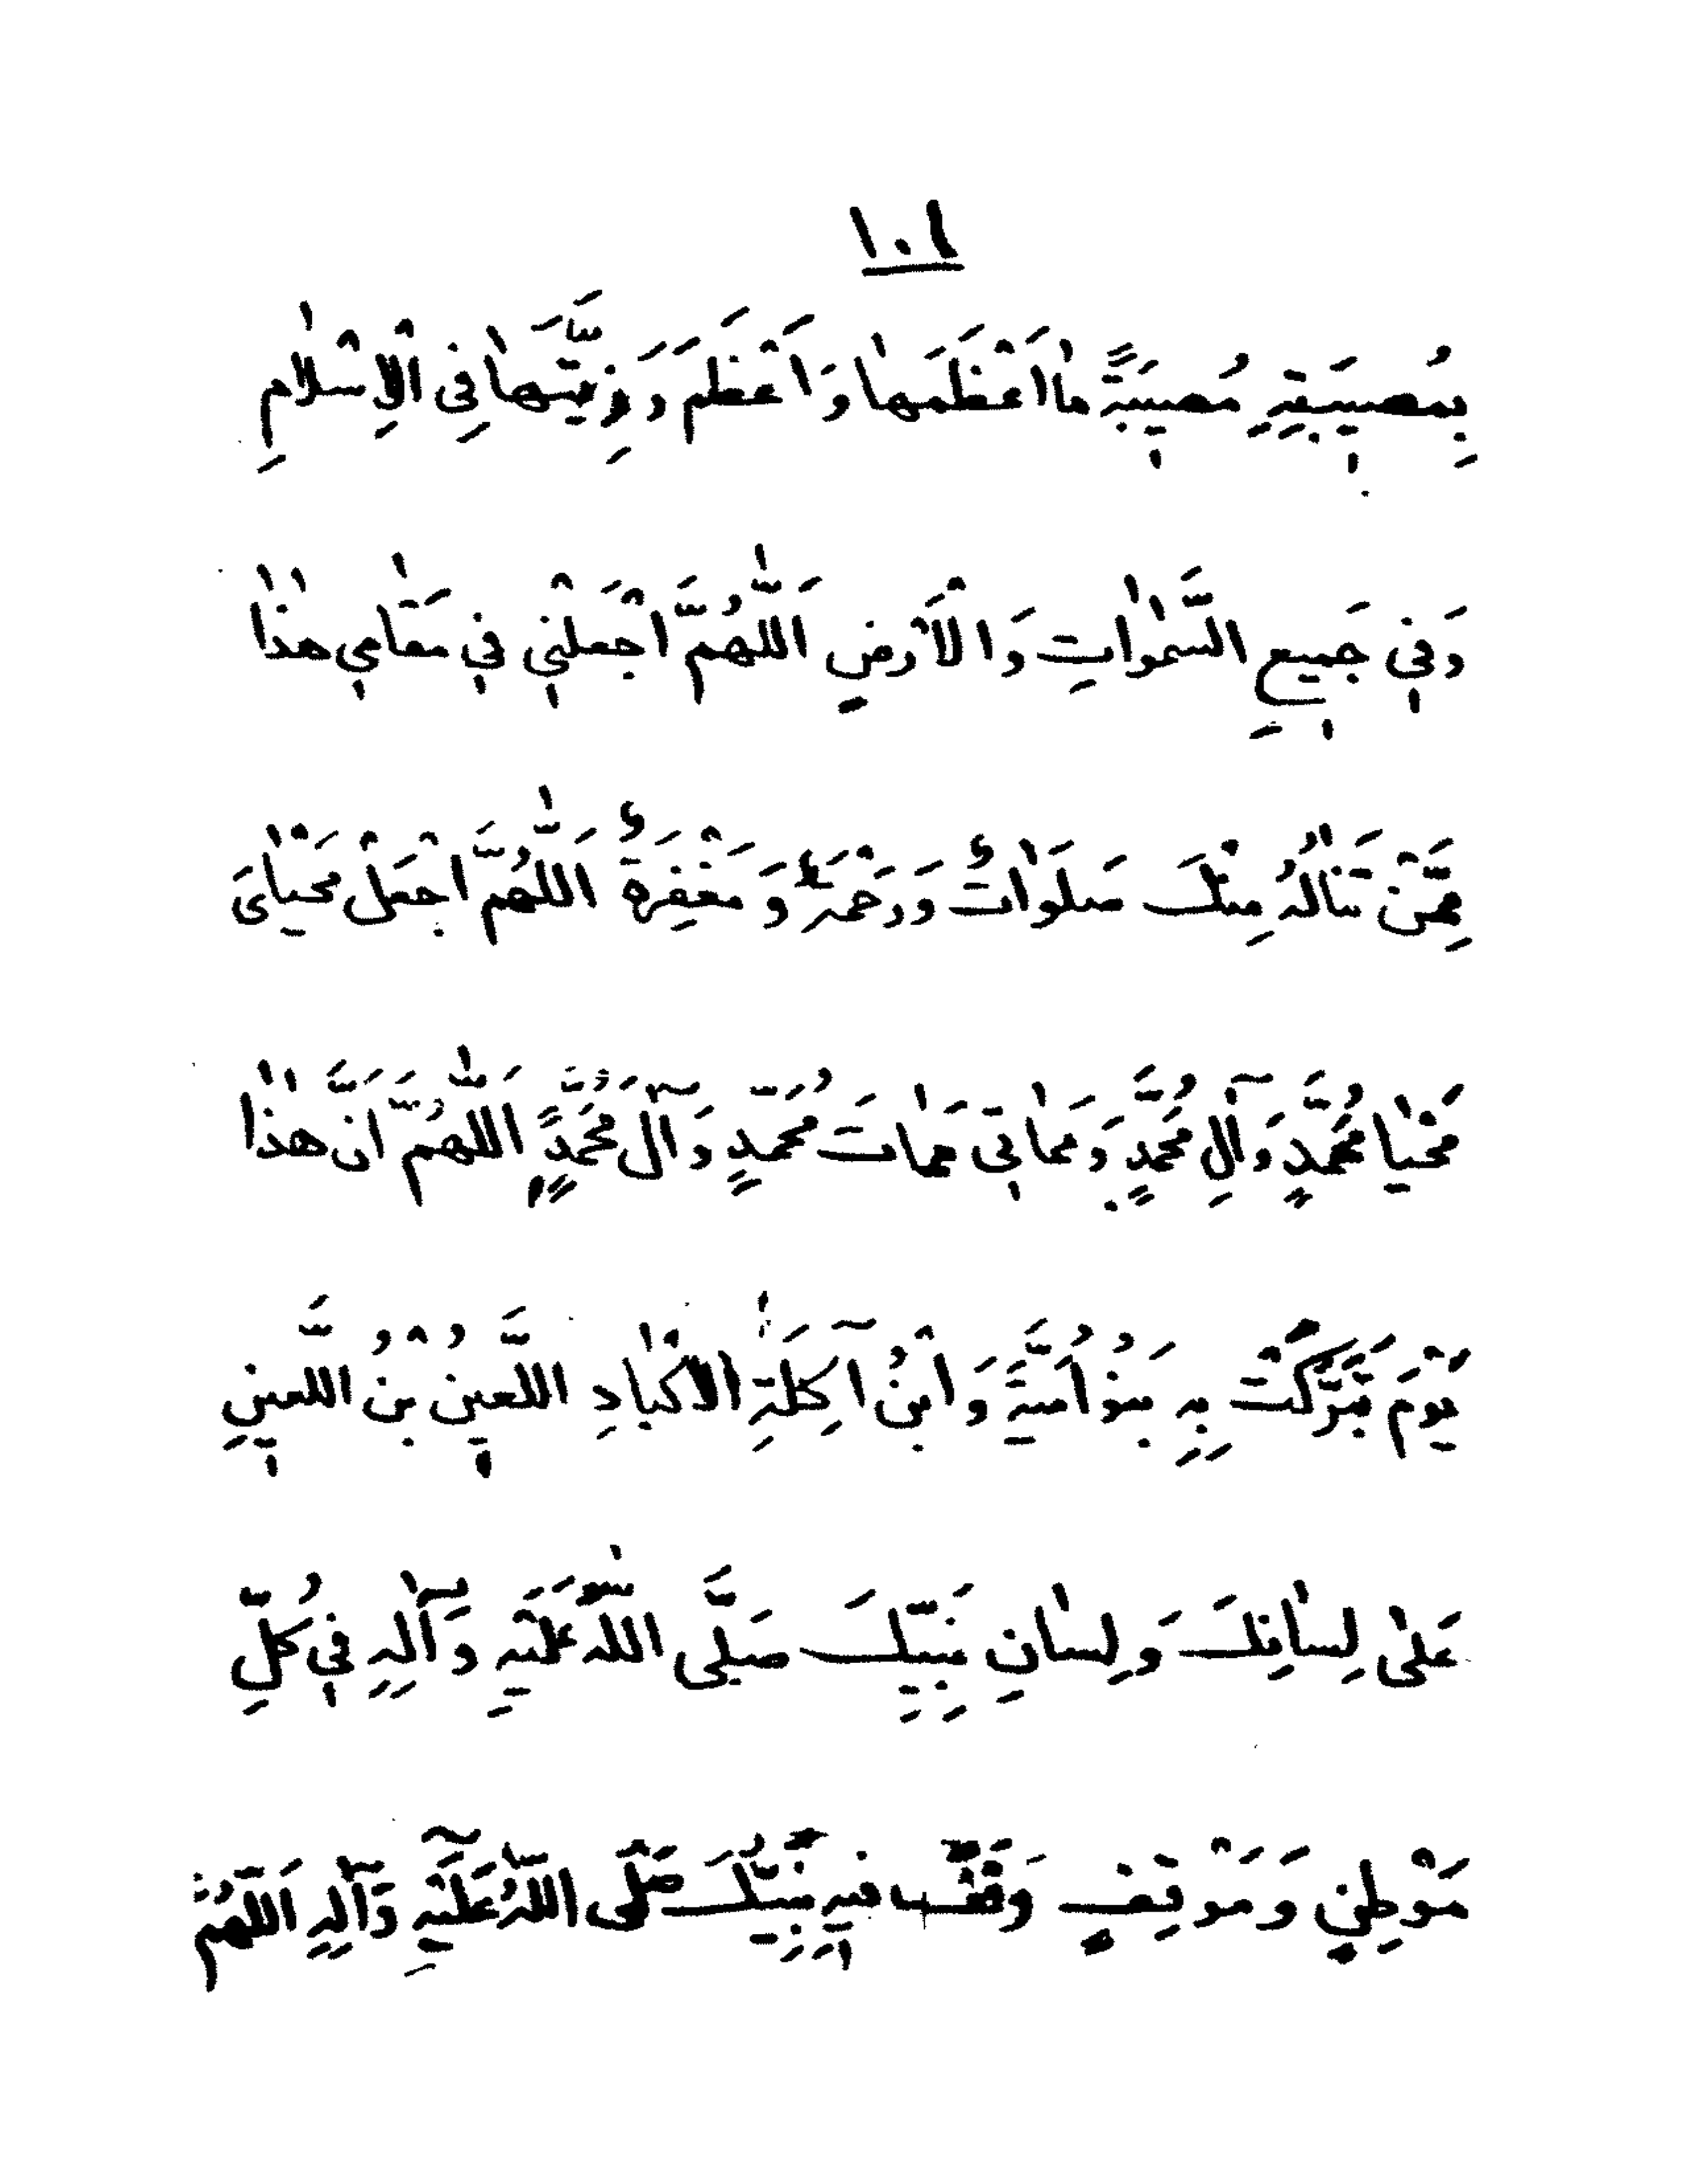 ١٠١
بِمُصيبَتِهِ مُصيبَةً مٰا اَعْظَمَهٰا وَ اَعْظَمَ رَزِيَّتَهٰا فِى الْاِسْلٰامِ
وَفي جَميعِ السَّمٰوٰاتِ وَالْاَرْضِ اَللّٰهُمَّ اجْعَلْني في مَقٰامي هٰذٰا
مِمَّنْ تَنٰالُهُ مِنْكَ صَلَوٰاتٌ وَرَحْمَةٌ وَ مَغْفِرَةٌ اَللّٰهُمَّ اجْعَلْ مَحْيٰاىَ
مَحْيٰا مُحَمَّدٍ وَآلِ مُحَمَّدٍ وَ مَمٰاتي مَمٰاتَ مُحَمَّدٍ وَآلِ مُحَمَّدٍ اَللّٰهُمَّ اِنَّ هٰذٰا
يَوْمَ تَبَرَّكَتْ بِهِ بَنُو اُمَيَّةَ وَ ابْنُ آكِلَةِ الْاَكْبٰادِ اللَّعينُ بْنُ اللَّعينِ
عَلىٰ لِسٰانِكَ وَ لِسٰانِ نَبِيِّكَ صَلَّى اللّٰهُ عَلَيْهِ وَآلِهِ في كُلِّ
مَوْطِنٍ وَ مَوْقِفٍ وَقَفَ فيهِ نَبِيُّكَ صَلَّى اللّٰهُ عَلَيْهِ وَآلِهِ اَللّٰهُمَّ